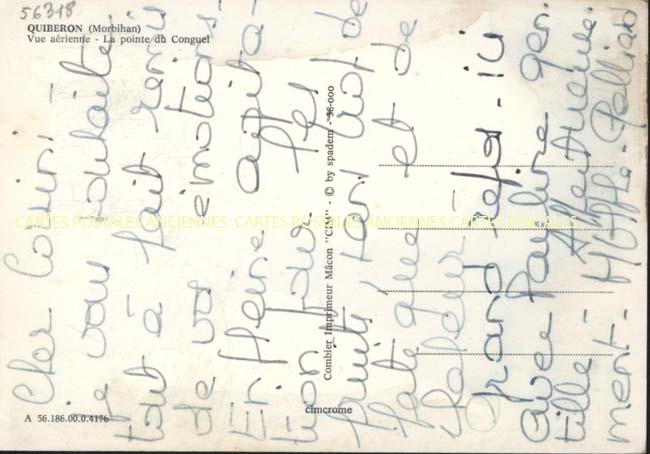 56318
QUIBERON (Morbihan)
Vue aérienne - La pointe du Conguel
Combier Imprimeur Mâcon "CIM" - © by spadem - 38-000
A 56.186.00.0.4176
cimcrome
CARTES POSTALES ANCIENNES CARTES POSTALES ANCIENNES CARTES POSTALES ANCIENNES
Cher Cousin -
je vous souhaite
tout à fait remis
de vos émotions.
En pleine appita-
tion pour les
fruits, tant tout de
hate que et de
grand repos - ici
avec Pauline gen-
tille - Affectueuse-
ment -